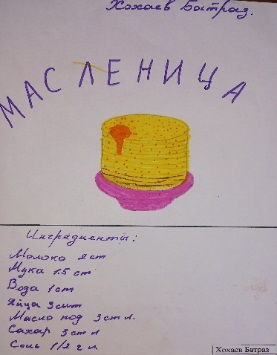 Хохаев Батраз.
МАСЛЕНИЦА
Ингредиенты:
Молоко 2 ст
Мука 1.5 ст
Вода 1 ст
Яйца 3 шт
Масло под 3 ст л.
Сахар 3 ст л
Соль 1/2 ч л
Хохаев Битраз